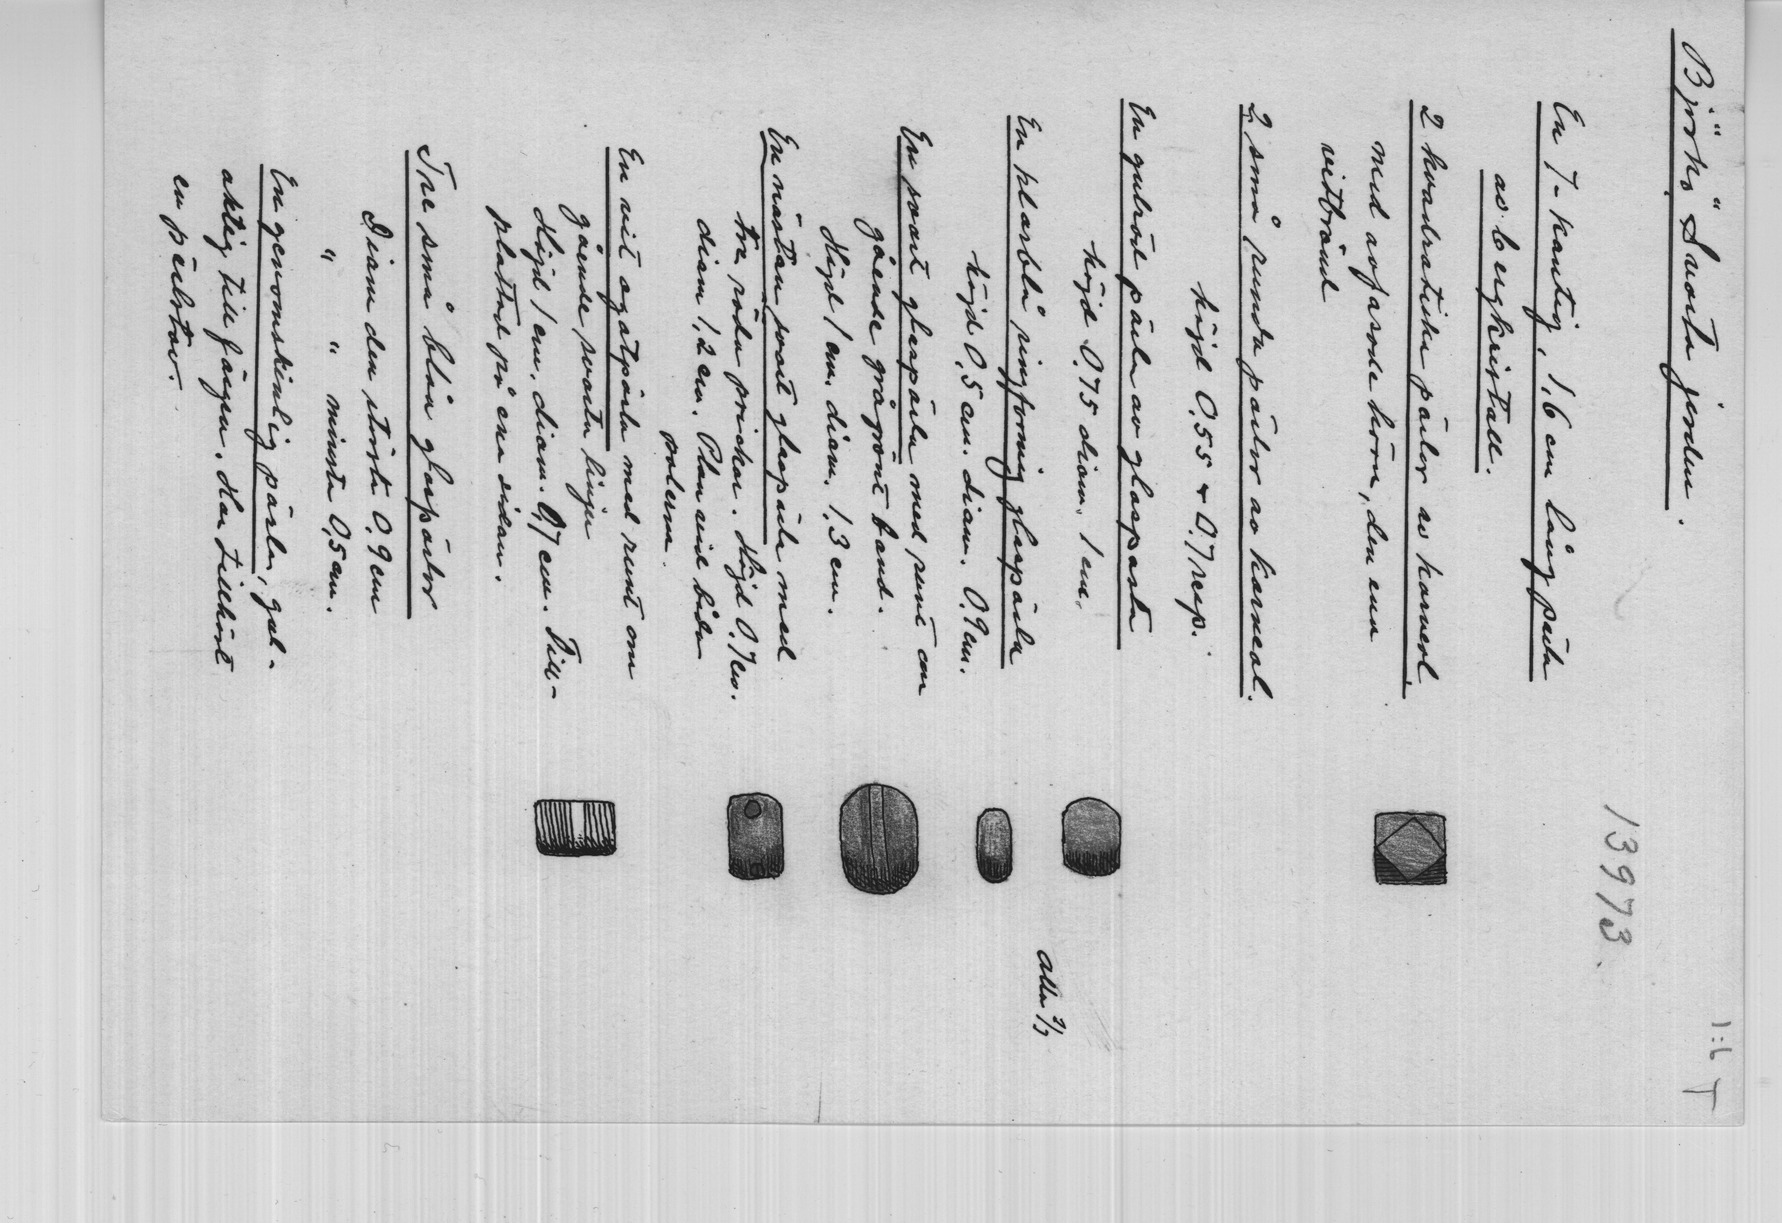 Björkö Svarta jorden.
1:6 T
13973.
En 7-kantig, 1,6 cm lång pärla
av bergkristall.
2 kvadratiska pärlor av karneol
med avfasade hörn, den ena
vitbränd
2 små, runda pärlor av karneol.
höjd 0,55 & 0,7 resp.
En gulröd pärla av glaspasta
höjd 0,75 diam. 1 cm.
En klarblå ringformig glaspärla
höjd 0,5 cm. diam. 0,9 cm.
alla 1/1
En svart glaspärla med runt om
gående grågrönt band.
Höjd 1 cm. diam. 1,3 cm.
En nästan svart glaspärla med
tre röda prickar. Höjd 0,7 cm.
diam 1,2 cm. Plan vid båda
polerna.
En vit agatpärla med runt om
gående svarta linjer
Höjd 1 cm, diam. 0,7 cm. Till-
plattad på ena sidan.
Tre små blåa glaspärlor
Diam den största 0,9 cm
" " minsta 0,5 cm.
En genomskinlig pärla, gul-
aktig till färgen. Har tillhört
en pärlrad.